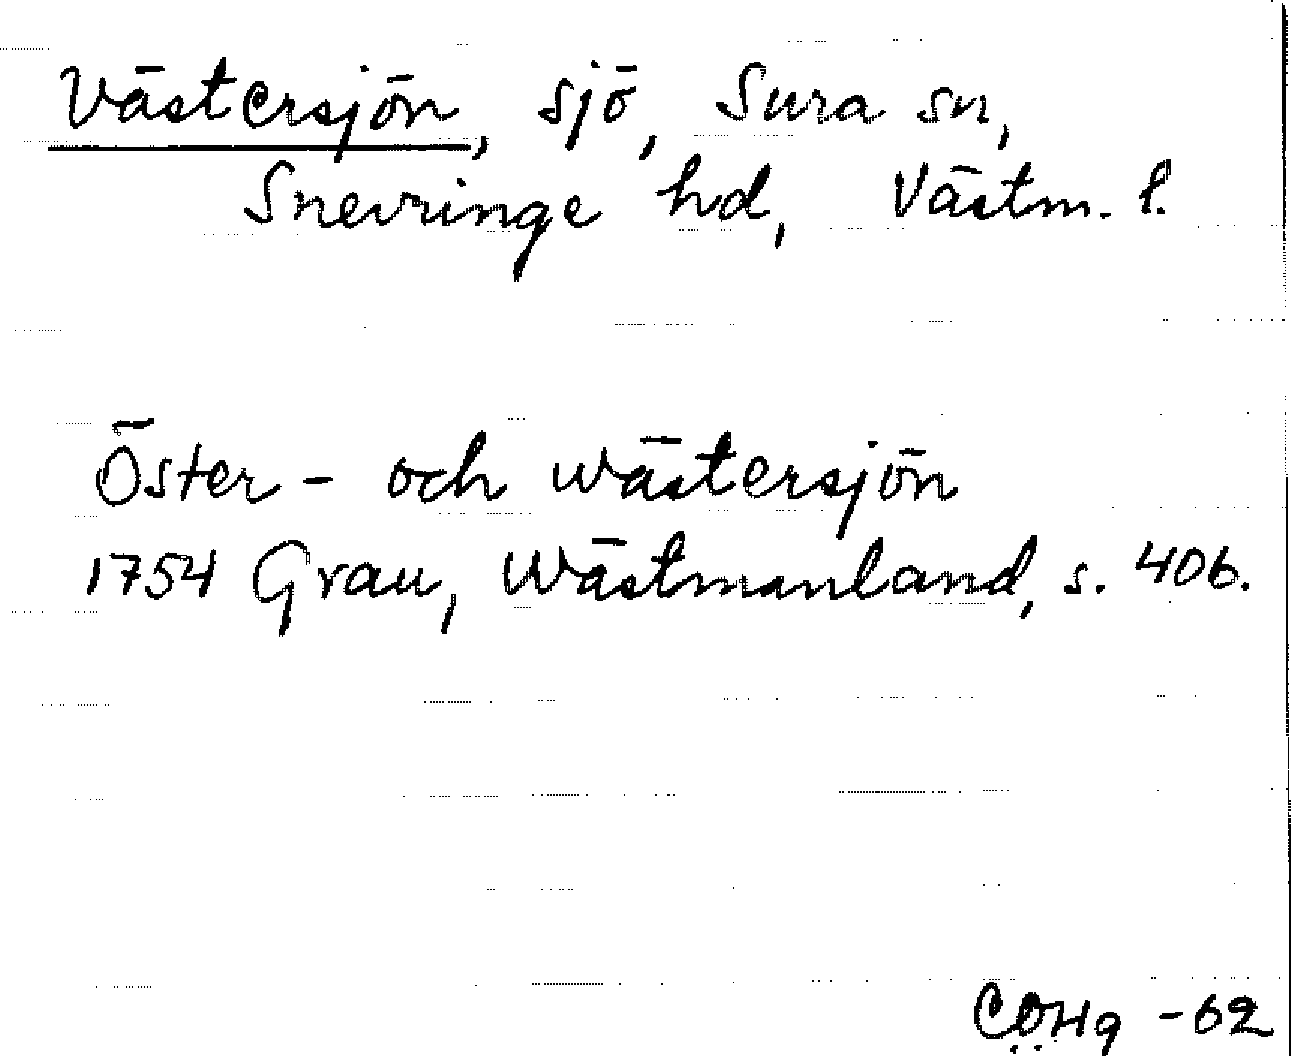 Västersjön, sjö, Sura sn,
Snevringe hd, Västm. l.
Öster- och wästersjön
1754 Grau, Wästmanland, s. 406.
CÖHg -62